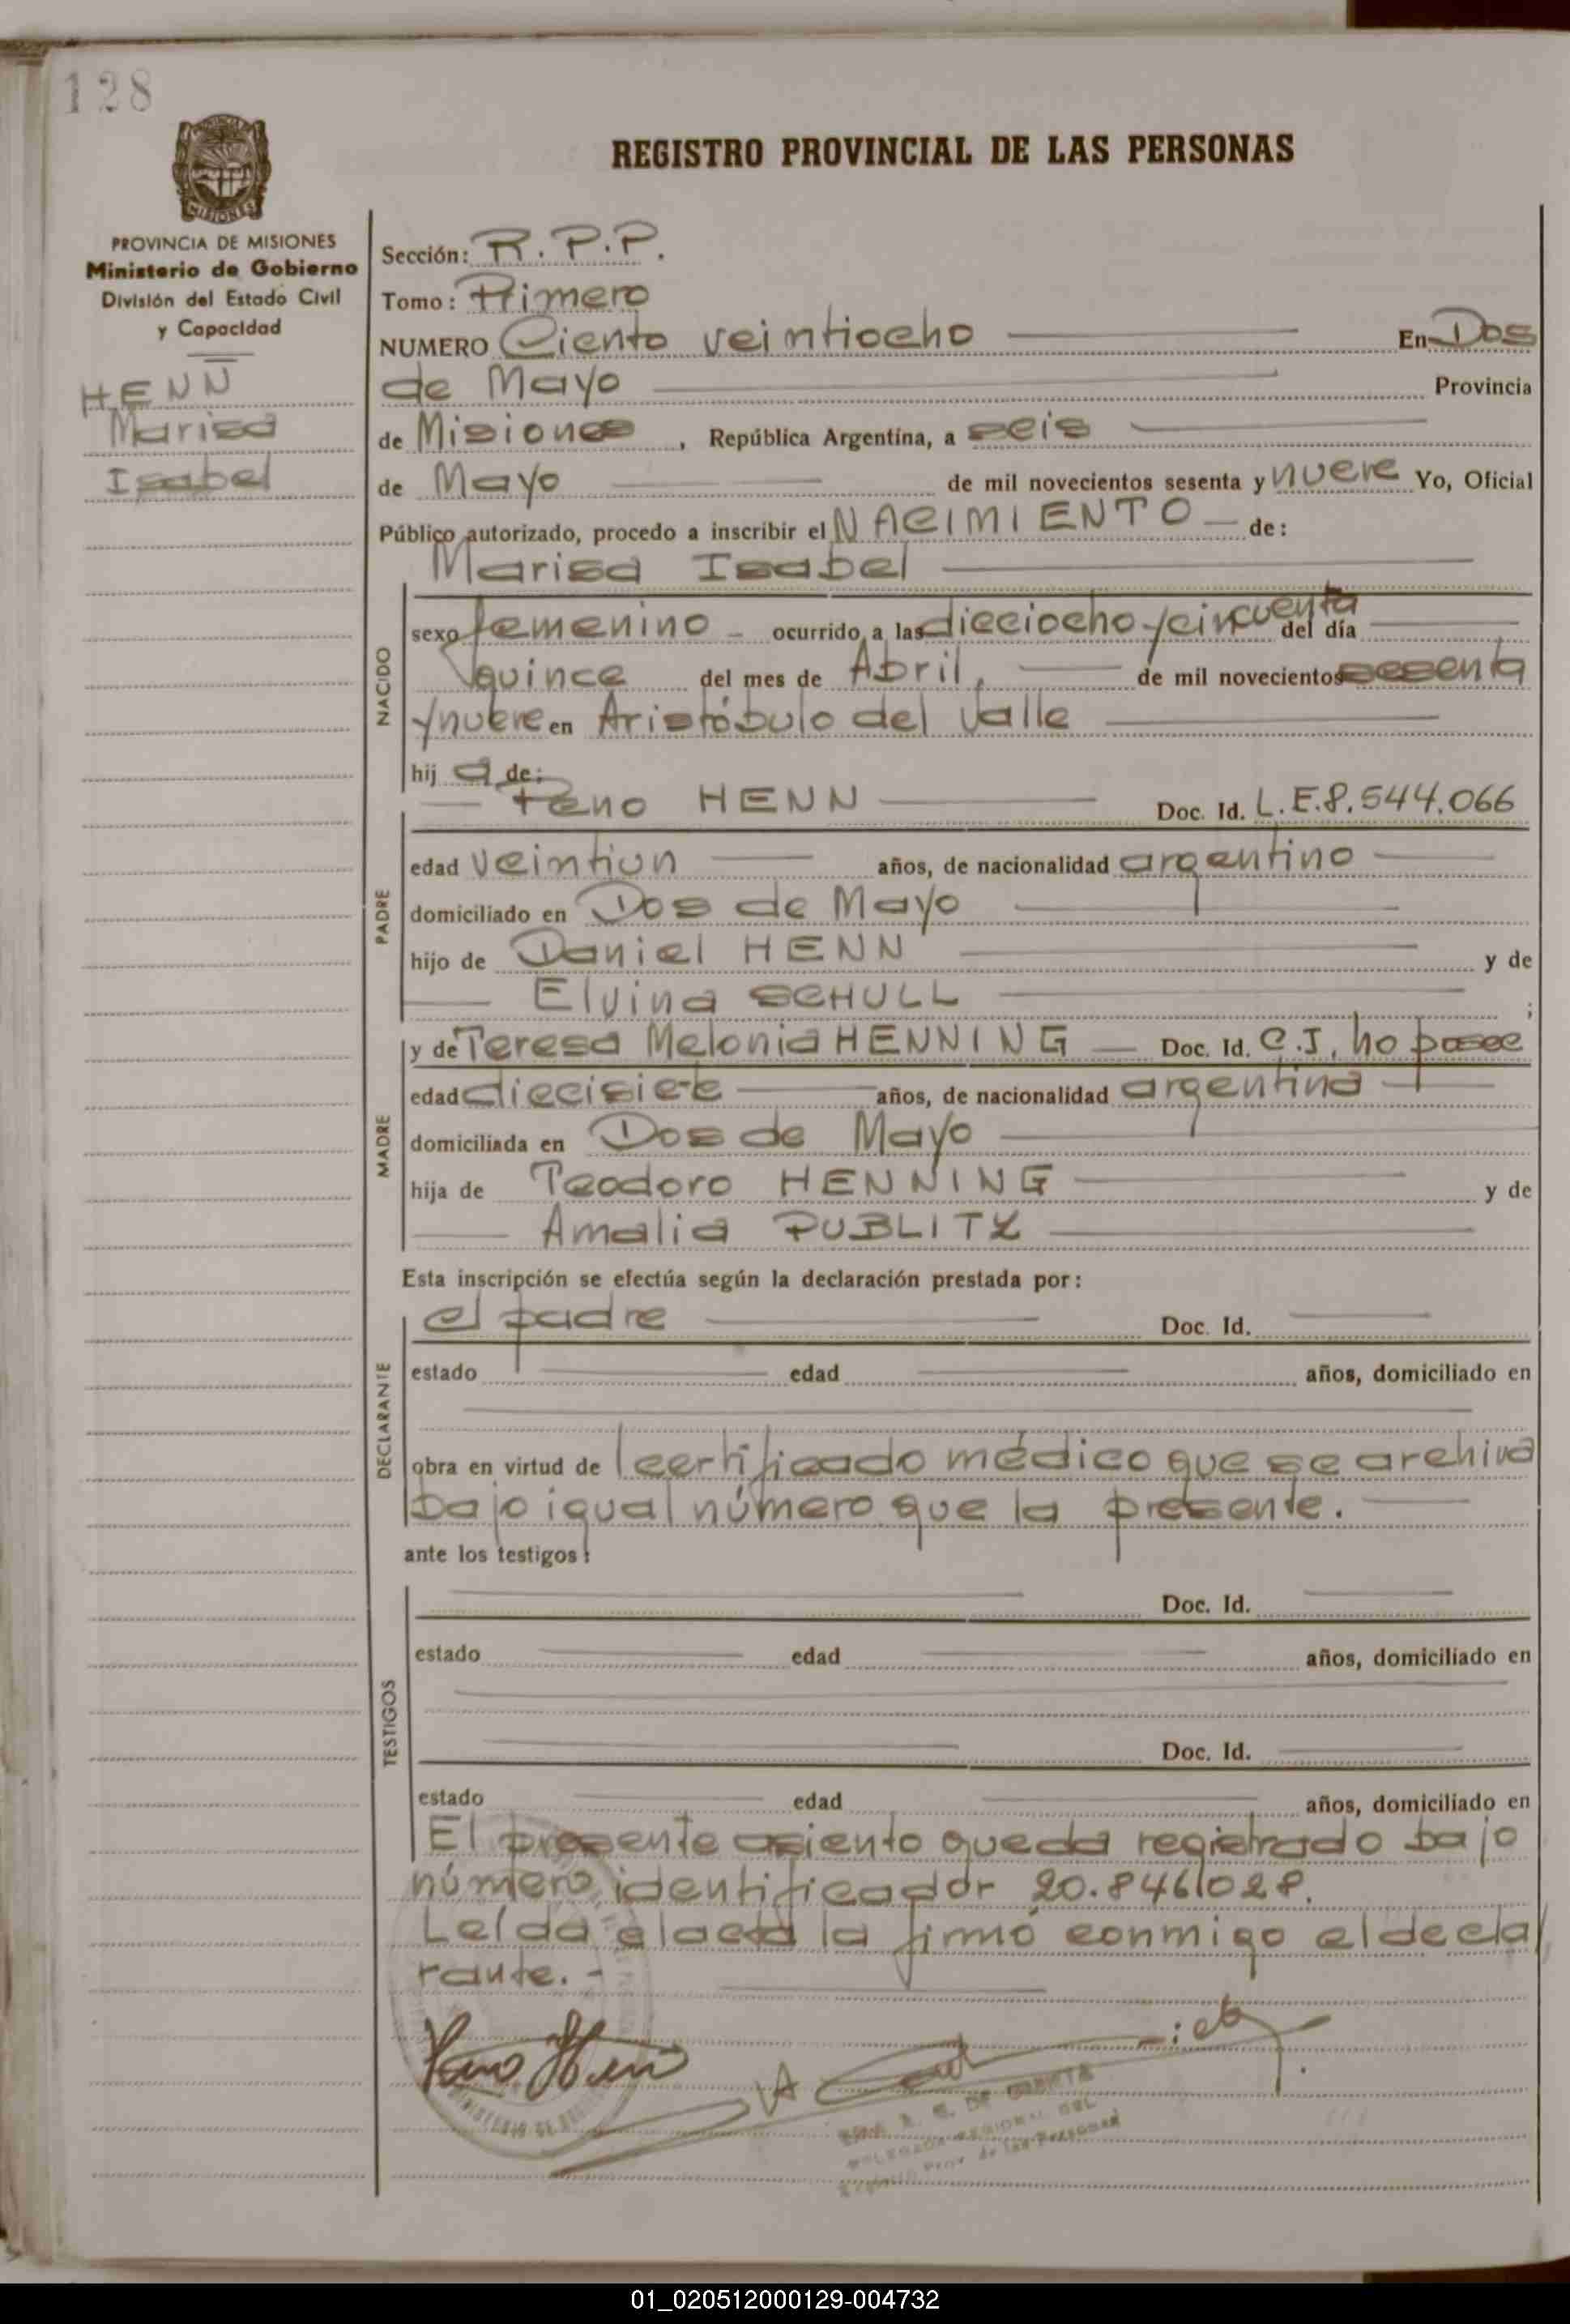 128
MISIONES
REGISTRO PROVINCIAL DE LAS PERSONAS
PROVINCIA DE MISIONES
Ministerio de Gobierno
División del Estado Civil
y Capacidad
HENN
Marisa
Isabel
Sección: R.P.P.
Tomo: Primero
NUMERO Ciento veintiocho En Dos
de Mayo Provincia
de Misiones, República Argentina, a seis
de Mayo de mil novecientos sesenta y nueve Yo, Oficial
Público autorizado, procedo a inscribir el NACIMIENTO de:
Marisa Isabel
NACIDO
sexo femenino ocurrido a las dieciocho y cincuenta del día
quince del mes de Abril, de mil novecientos sesenta
y nueve en Aristóbulo del Valle
hij a de:
HENN Doc. Id. L.E.8.544.066
PADRE
edad veintiun años, de nacionalidad argentino
domiciliado en Dos de Mayo
hijo de Daniel HENN y de
Elvina SCHULL ;
y de Teresa Melonia HENNING Doc. Id. C.I. no posee
MADRE
edad diecisiete años, de nacionalidad argentina
domiciliada en Dos de Mayo
hija de Teodoro HENNING y de
Amalia PUBLITZ
Esta inscripción se efectúa según la declaración prestada por:
DECLARANTE
el padre Doc. Id.
estado edad años, domiciliado en
obra en virtud de certificado médico que se archiva
bajo igual número que la presente.
ante los testigos:
TESTIGOS
Doc. Id.
estado edad años, domiciliado en
Doc. Id.
estado edad años, domiciliado en
El presente asiento queda registrado bajo
número identificador 20.846.028.
Leída el acta la firmó conmigo el decla
rante.-
de las Personas
01_020512000129-004732